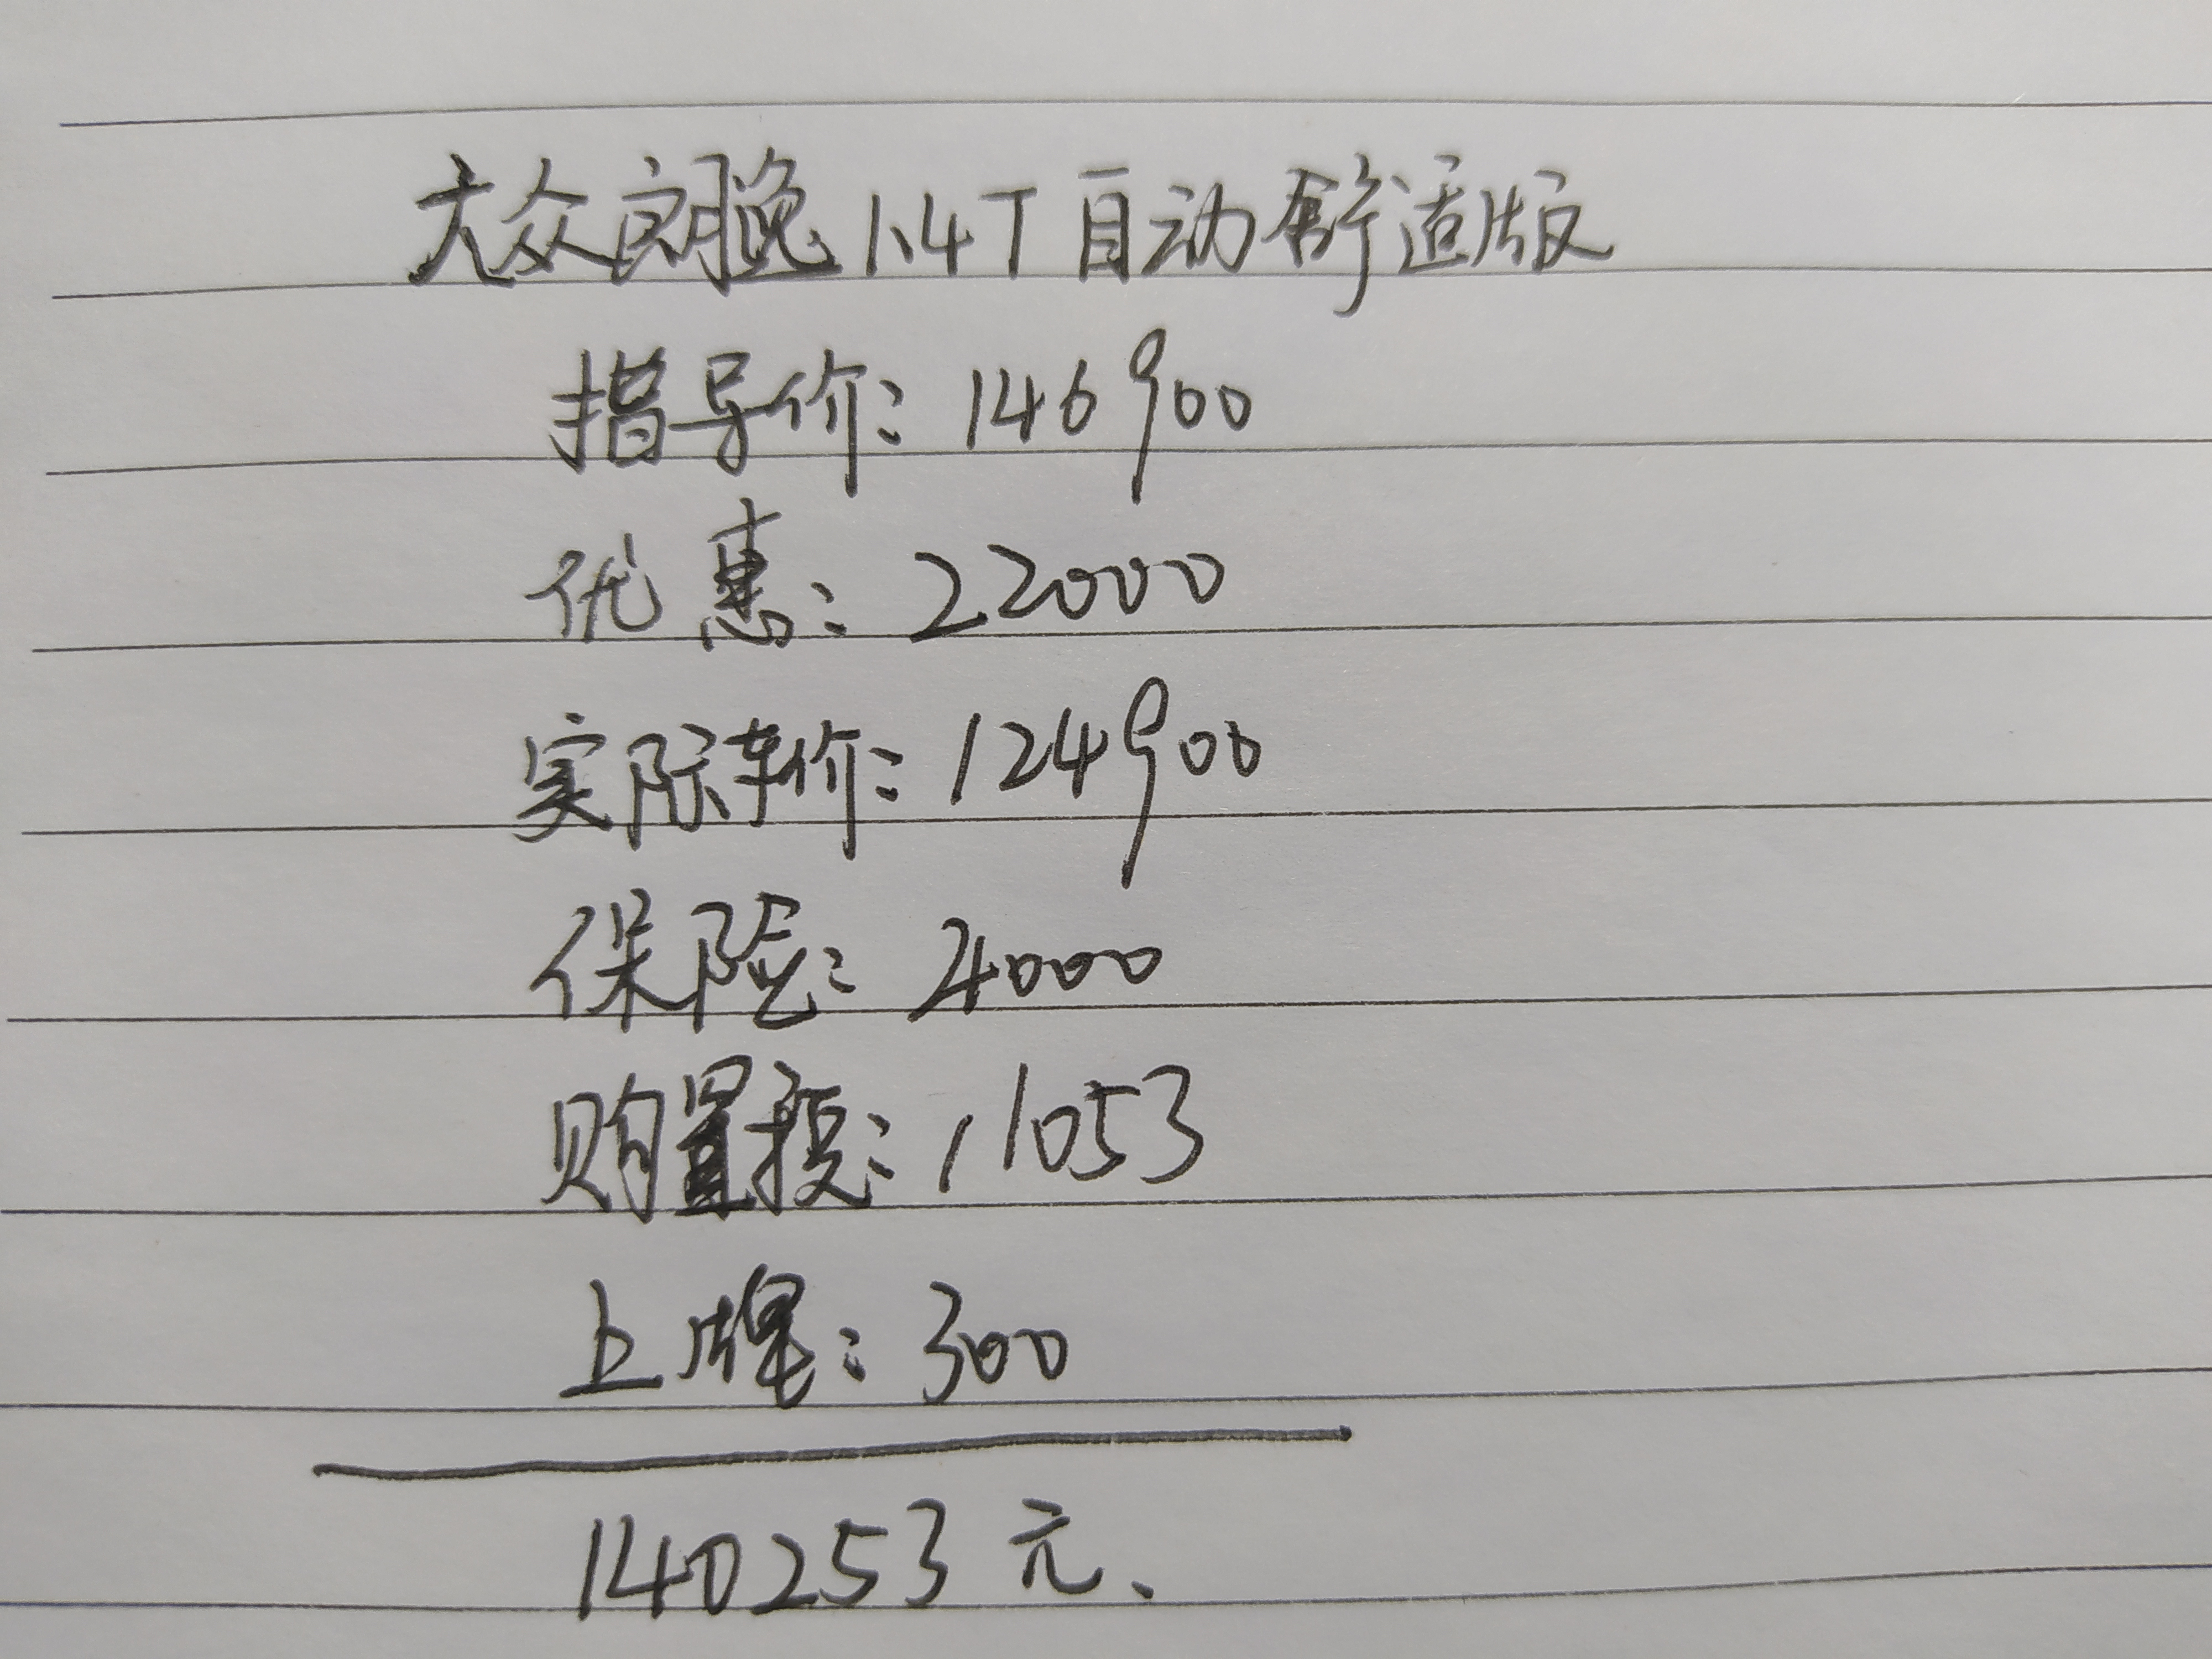 大众朗逸1.4T自动舒适版
指导价:146900
优惠:22000
实际车价:124900
保险:4000
购置税:11053
上牌:300
140253元.